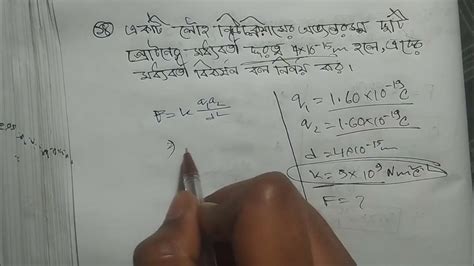 একটি লৌহ নিউক্লিয়াসের অভ্যন্তরস্থ দুটি
প্রোটনের মধ্যবর্তী দূরত্ব 4×10⁻¹⁵m হলে, এদের
মধ্যবর্তী বিকর্ষন বল নির্ণয় কর।
F = k q₁q₂/d²
q₁ = 1.60×10⁻¹⁹C
q₂ = 1.60×10⁻¹⁹C
d = 4×10⁻¹⁵m
k = 9×10⁹ Nm²C⁻²
F = ?